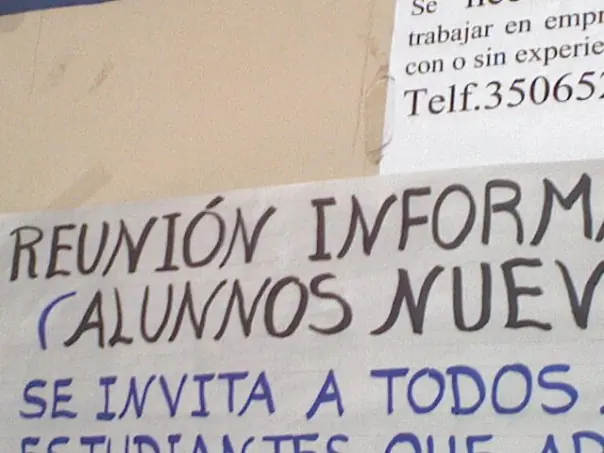 Se
trabajar en empr
con o sin experie
Telf.35065
REUNIÓN INFORMA
(ALUNNOS NUEV
SE INVITA A TODOS
ESTUDIANTES QUE AD